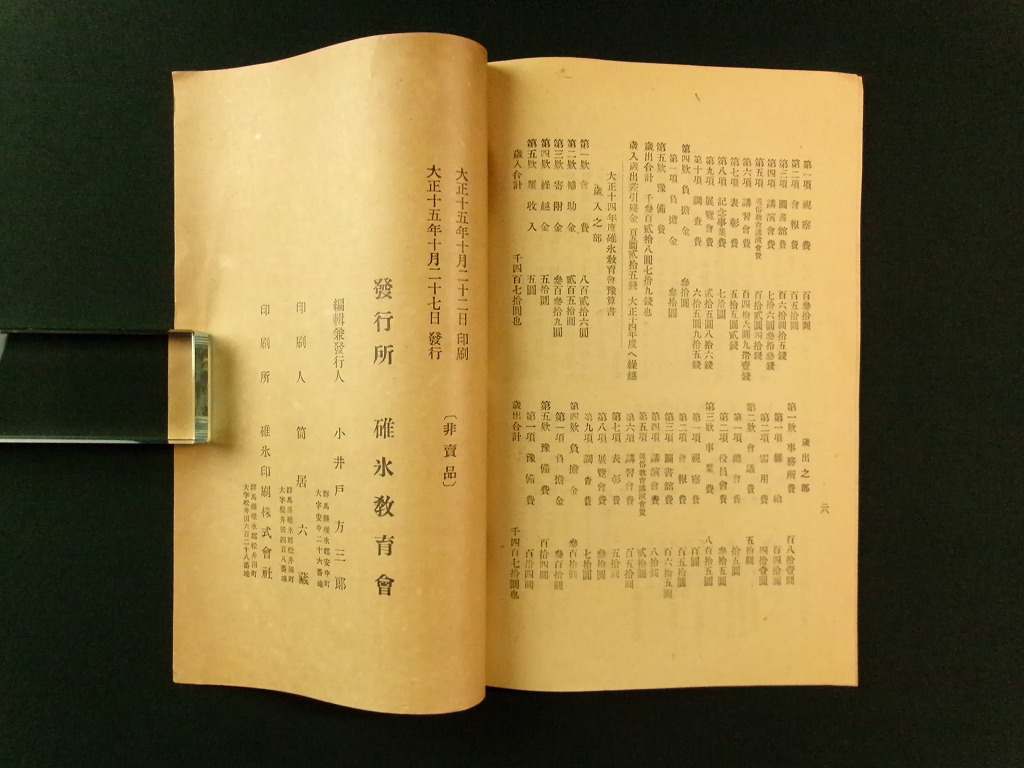 六
第一項 視察費 百參拾圓
第二項 會報費 百五拾圓
第三項 圖書舘費 百六拾圓拾五錢
第四項 講演會費 七拾六圓參拾參錢
第五項 通俗教育講演會費 百拾貳圓四拾錢
第六項 講習會費 百四拾六圓九拾壹錢
第七項 表彰費 五拾五圓貳錢
第八項 記念事業費
第九項 展覽會費 貳拾五圓八拾六錢
第十項 調査費 六拾五圓九拾五錢
第四欵 負擔金 參拾圓
第一項 負擔金 參拾圓
第五欵 豫備費
歲出合計 千參百貳拾八圓七拾九錢也
歲入歲出差引殘金 百五圓貳拾五錢 大正十四年度ヘ繰越
大正十四年度碓氷敎育會豫算書
歲入之部
第一欵 會費 八百貳拾六圓
第二欵 補助金 貳百五拾圓
第三欵 寄附金 參百參拾九圓
第四欵 繰越金 五拾圓
第五欵 雜收入 五圓
歲入合計 千四百七拾圓也
歲出之部
第一欵 事務所費 百八拾壹圓
第一項 雜給 百四拾圓
第二項 需用費 四拾壹圓
第二欵 會議費 五拾圓
第一項 總會費 拾五圓
第二項 役員會費 參拾五圓
第三欵 事業費 八百拾五圓
第一項 視察費 百圓
第二項 會報費 百五拾圓
第三項 圖書舘費 百六拾五圓
第四項 講演會費 八拾圓
第五項 通俗教育講演會費 貳拾圓
第六項 講習會費 百五拾圓
第七項 表彰費 五拾圓
第八項 展覽會費 參拾圓
第九項 調査費 七拾圓
第四欵 負擔金 參百拾圓
第一項 負擔金 參百拾圓
第五欵 豫備費 百拾四圓
第一項 豫備費 百拾四圓
歲出合計 千四百七拾圓也
大正十五年十月二十二日 印刷
大正十五年十月二十七日 發行
〔非賣品〕
發行所 碓氷敎育會
群馬縣碓氷郡安中町
大字安中二十六番地
編輯兼發行人 小井戶方三郎
群馬縣碓氷郡松井田町
大字松井田四百八番地
印刷人 筒居六藏
群馬縣碓氷郡松井田町
大字松井田六百二十八番地
印刷所 碓氷印刷株式會社